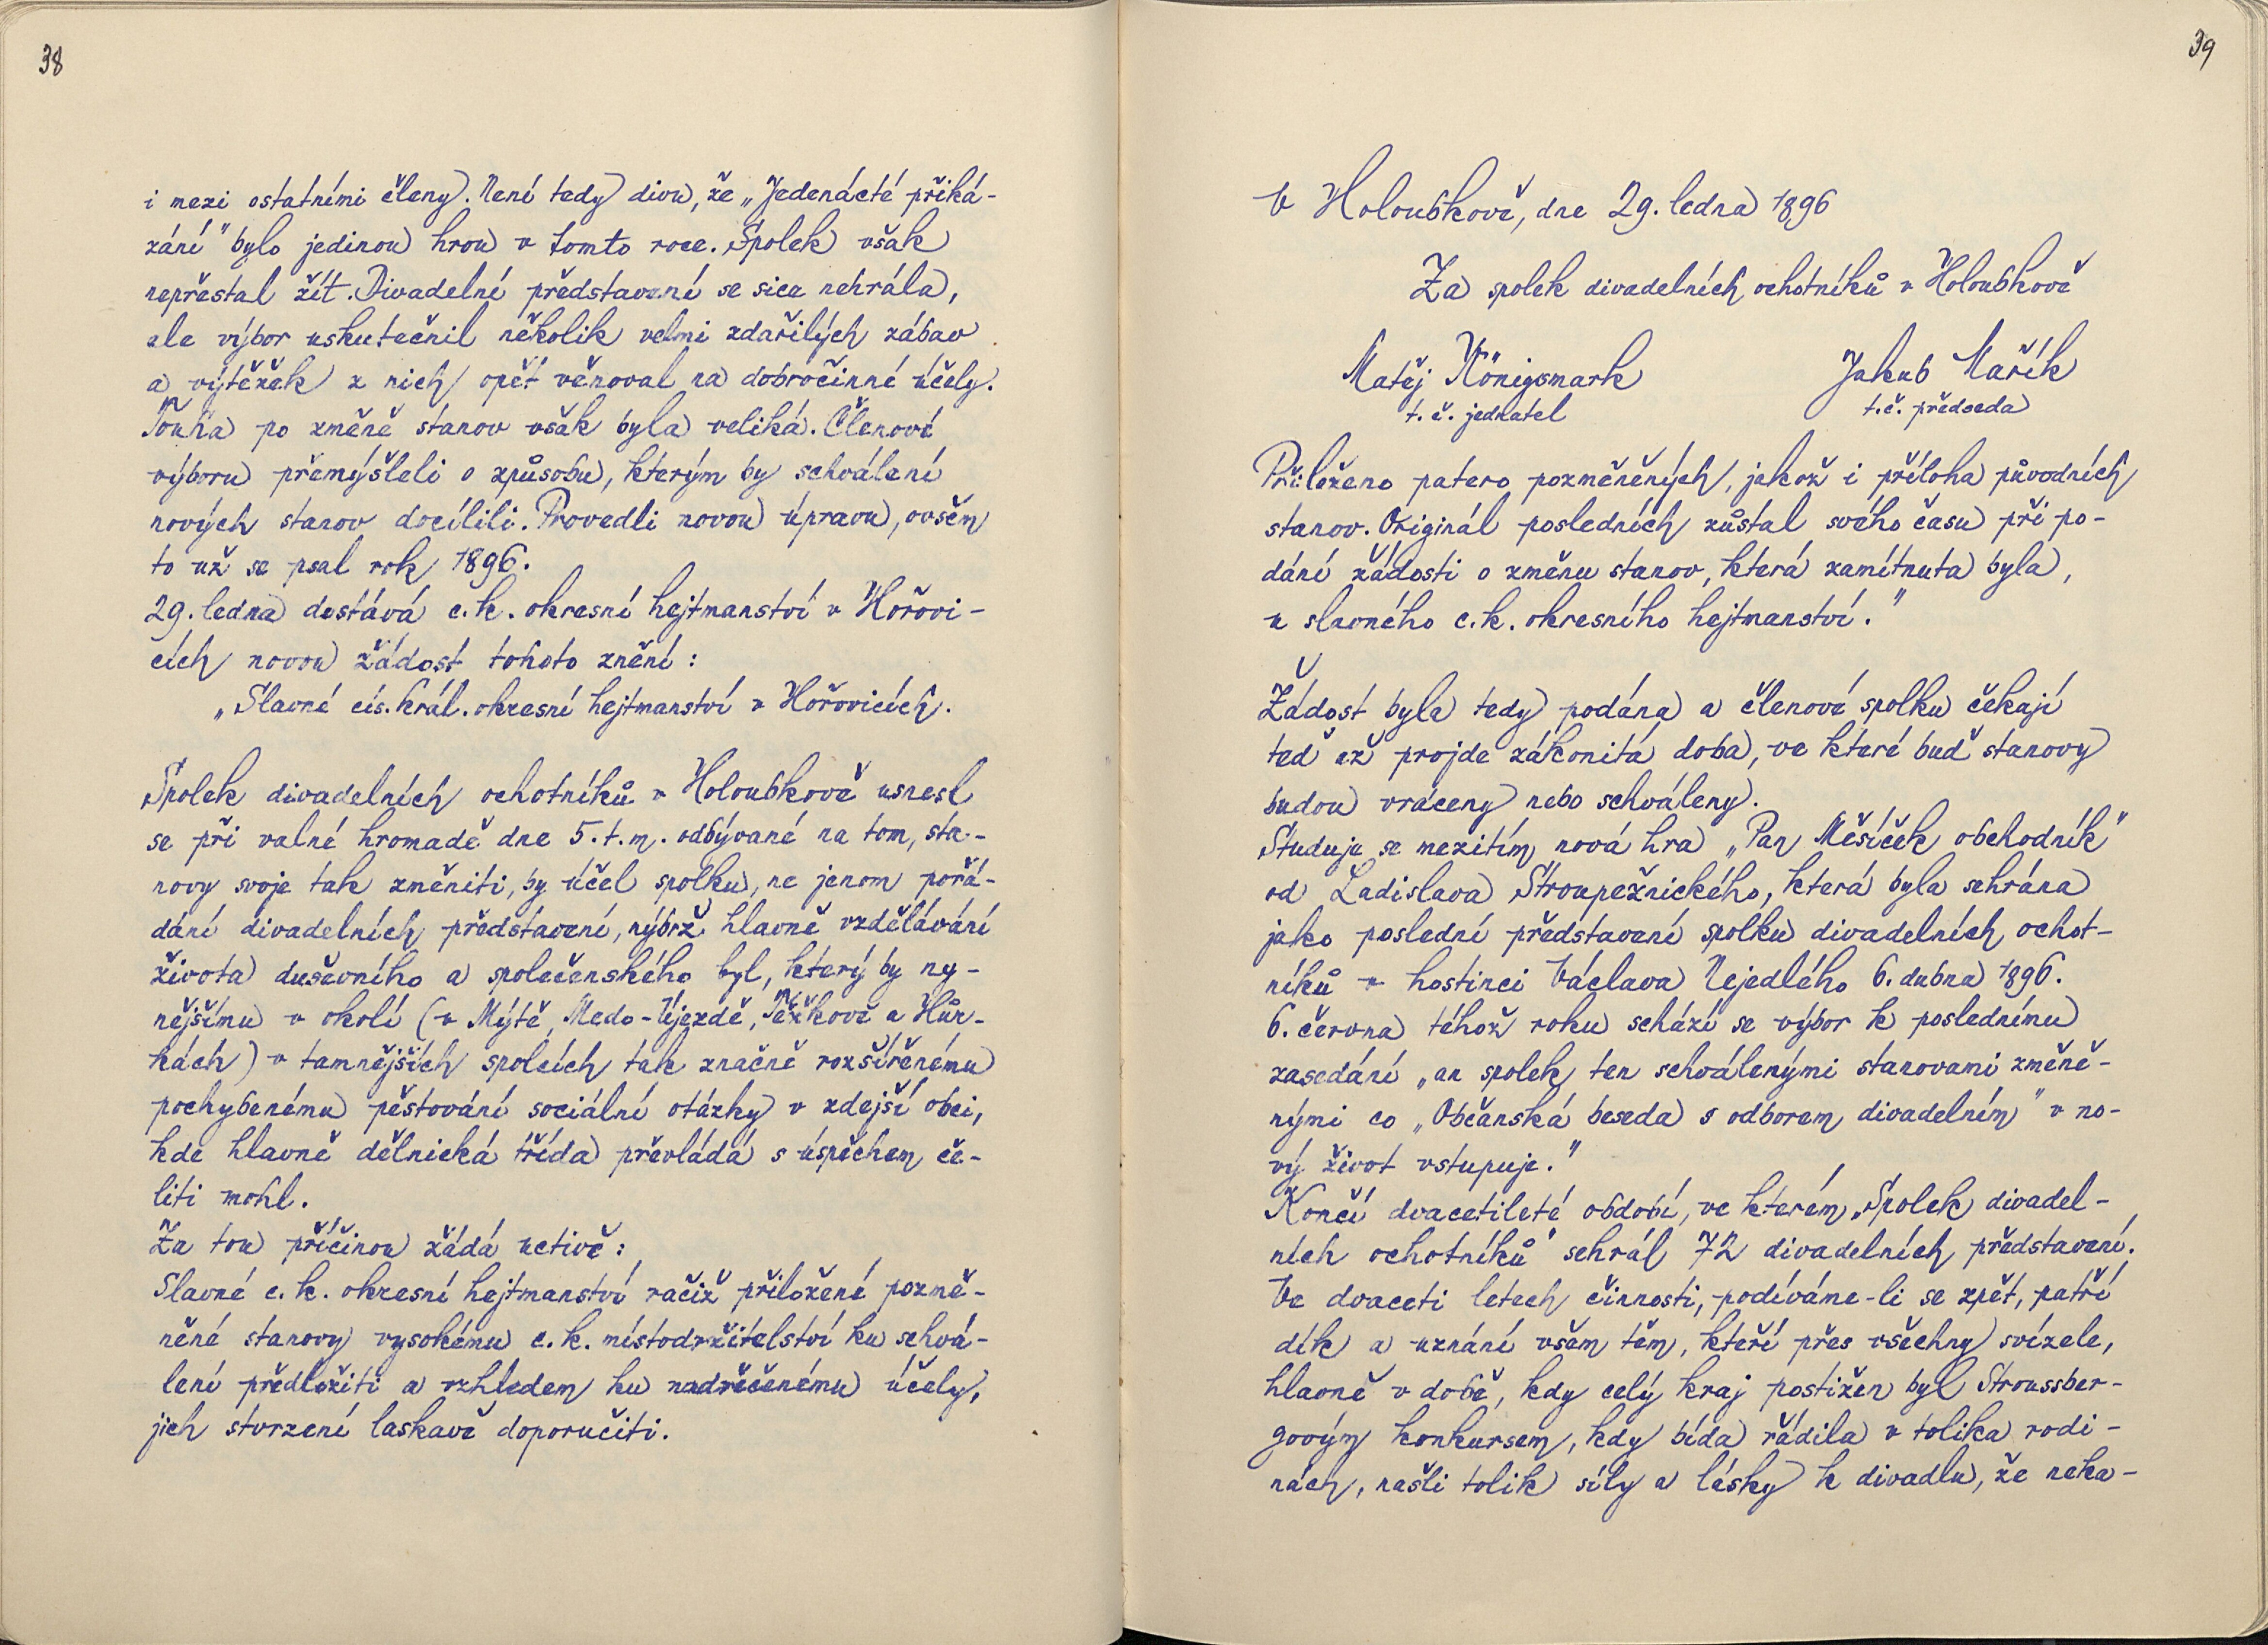 38
i mezi ostatními členy. Není tedy divu, že „Jedenácté přiká-
zání" bylo jedinou hrou v tomto roce. Spolek však
nepřestal žít. Divadelní představení se sice nehrála,
ale výbor uskutečnil několik velmi zdařilých zábav
a výtěžek z nich opět věnoval na dobročinné účely.
Touha po změně stanov však byla veliká. Členové
výboru přemýšleli o způsobu, kterým by schválení
nových stanov docílili. Provedli novou úpravu, ovšem
to už se psal rok 1896.
29. ledna dostává c. k. okresní hejtmanství v Hořovi-
cích novou žádost tohoto znění:
„Slavné cís. král. okresní hejtmanství v Hořovicích.
Spolek divadelních ochotníků v Holoubkově usnesl
se při valné hromadě dne 5. t. m. odbývané na tom, sta-
novy svoje tak změniti, by účel spolku, ne jenom pořá-
dání divadelních představení, nýbrž hlavně vzdělávání
života duševního a společenského byl, který by ny-
nějšímu v okolí (v Mýtě, Medo-Újezdě, Těškově a Hůr-
kách) v tamnějších spolcích tak značně rozšířenému
pochybenému pěstování sociální otázky v zdejší obci,
kde hlavně dělnická třída převládá s úspěchem če-
liti mohl.
Za tou příčinou žádá uctivě:
Slavné c. k. okresní hejtmanství račiž přiložené pozmě-
něné stanovy vysokému c. k. místodržitelství ku schvá-
lení předložiti a vzhledem ku nadřečenému účely,
jich stvrzení laskavě doporučiti.
39
V Holoubkově, dne 29. ledna 1896
Za spolek divadelních ochotníků v Holoubkově
Matěj Königsmark Jakub Mařík
t. č. jednatel t. č. předseda
Přiloženo patero pozměněných, jakož i příloha původních
stanov. Originál posledních zůstal svého času při po-
dání žádosti o změnu stanov, která zamítnuta byla,
u slavného c. k. okresního hejtmanství."
Žádost byla tedy podána a členové spolku čekají
teď až projde zákonitá doba, ve které buď stanovy
budou vráceny nebo schváleny.
Studuje se mezitím nová hra „Pan Měsíček obchodník"
od Ladislava Stroupežnického, která byla sehrána
jako poslední představení spolku divadelních ochot-
níků v hostinci Václava Nejedlého 6. dubna 1896.
6. června téhož roku schází se výbor k poslednímu
zasedání „an spolek ten schválenými stanovami změně-
nými co „Občanská beseda s odborem divadelním" v no-
vý život vstupuje."
Končí dvacetileté období, ve kterém „Spolek divadel-
ních ochotníků" sehrál 72 divadelních představení.
Ve dvaceti letech činnosti, podíváme-li se zpět, patří
dík a uznání všem těm, kteří přes všechny svízele,
hlavně v době, kdy celý kraj postižen byl Stroussber-
govým konkursem, kdy bída řádila v tolika rodi-
nách, našli tolik síly a lásky k divadlu, že neka-